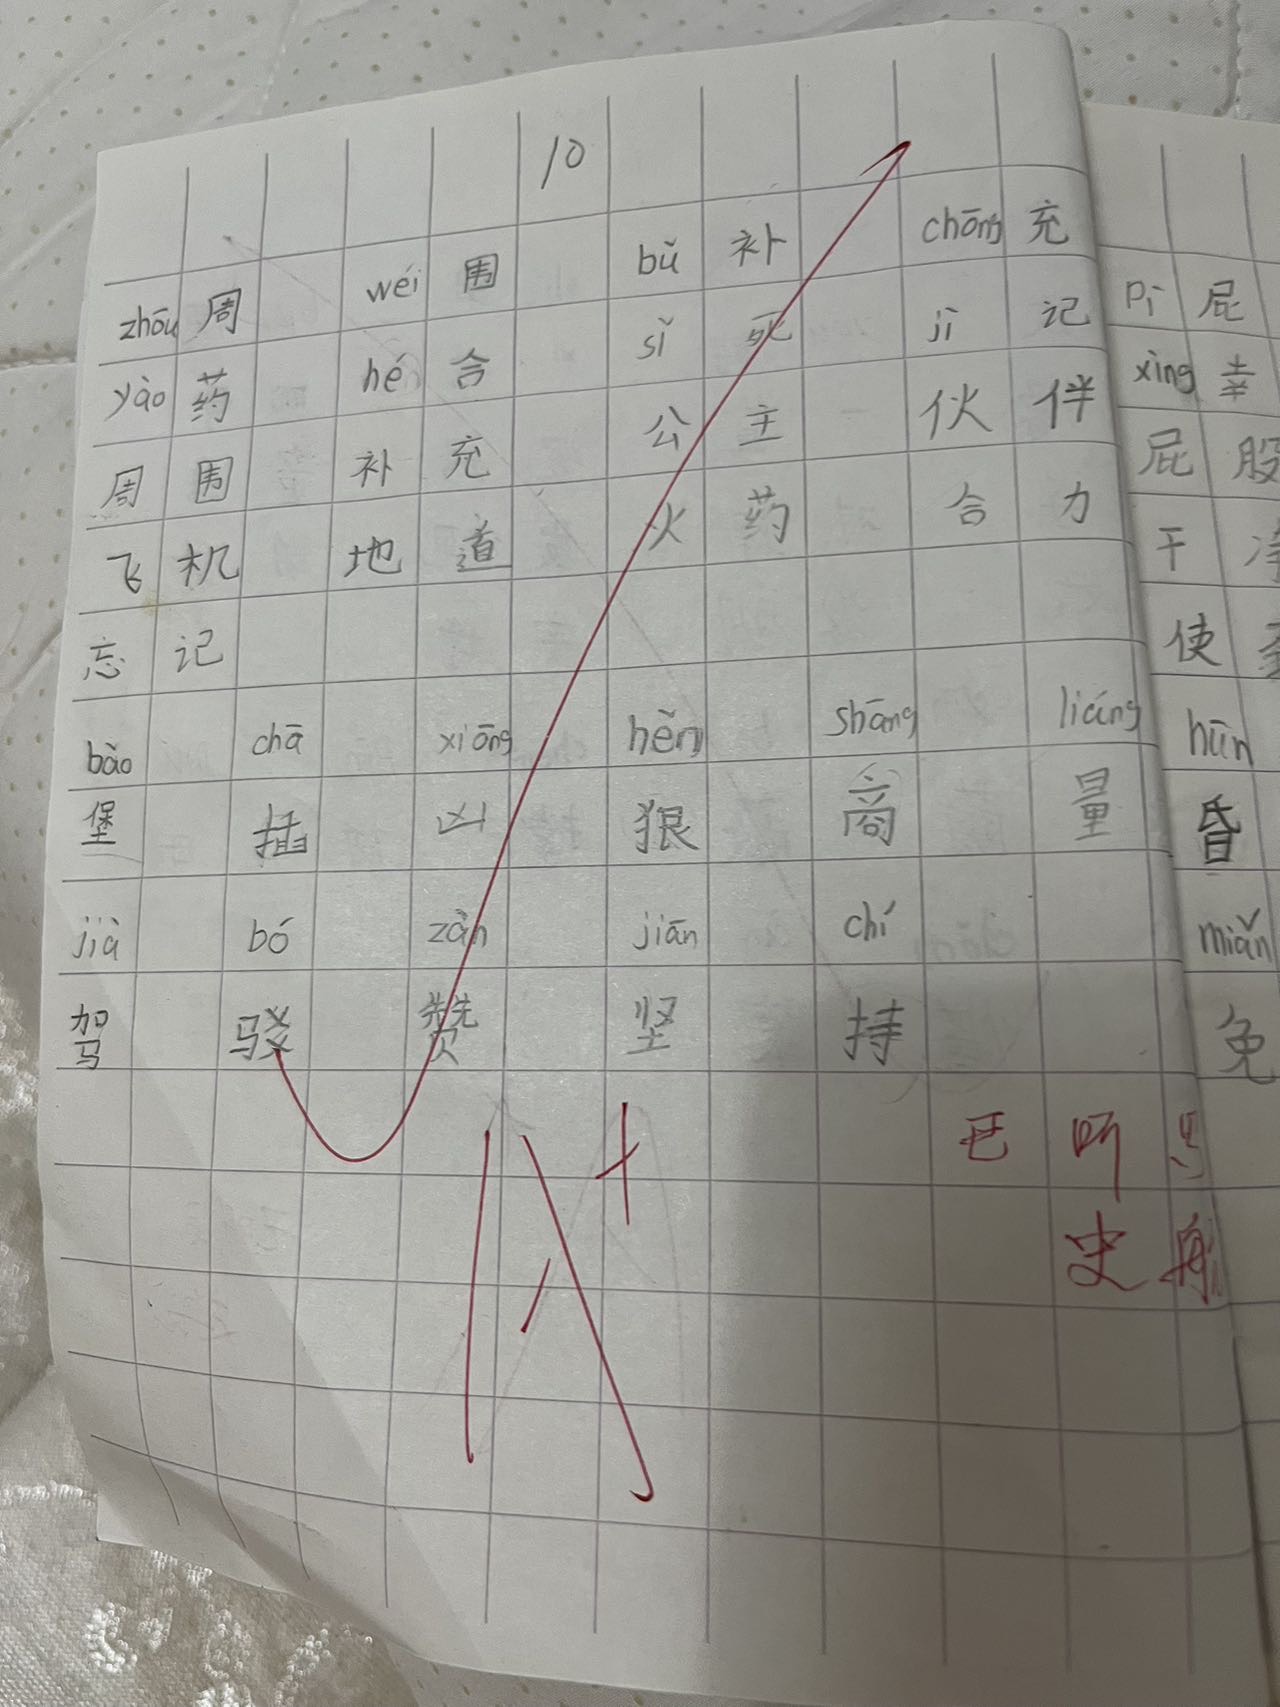 10
zhōu 周 wéi 围 bǔ 补 chōng 充
yào 药 hé 合 sǐ 死 jì 记
周围 补充 公主 伙伴
飞机 地道 火药 合力
忘记
bǎo chā xiōng hěn shāng liáng
堡 插 凶 狠 商 量
jià bó zàn jiān chí
驾 驳 赞 坚 持
A+
史
pì 屁
xìng 幸
屁股
干净
使
hūn
昏
miǎn
免